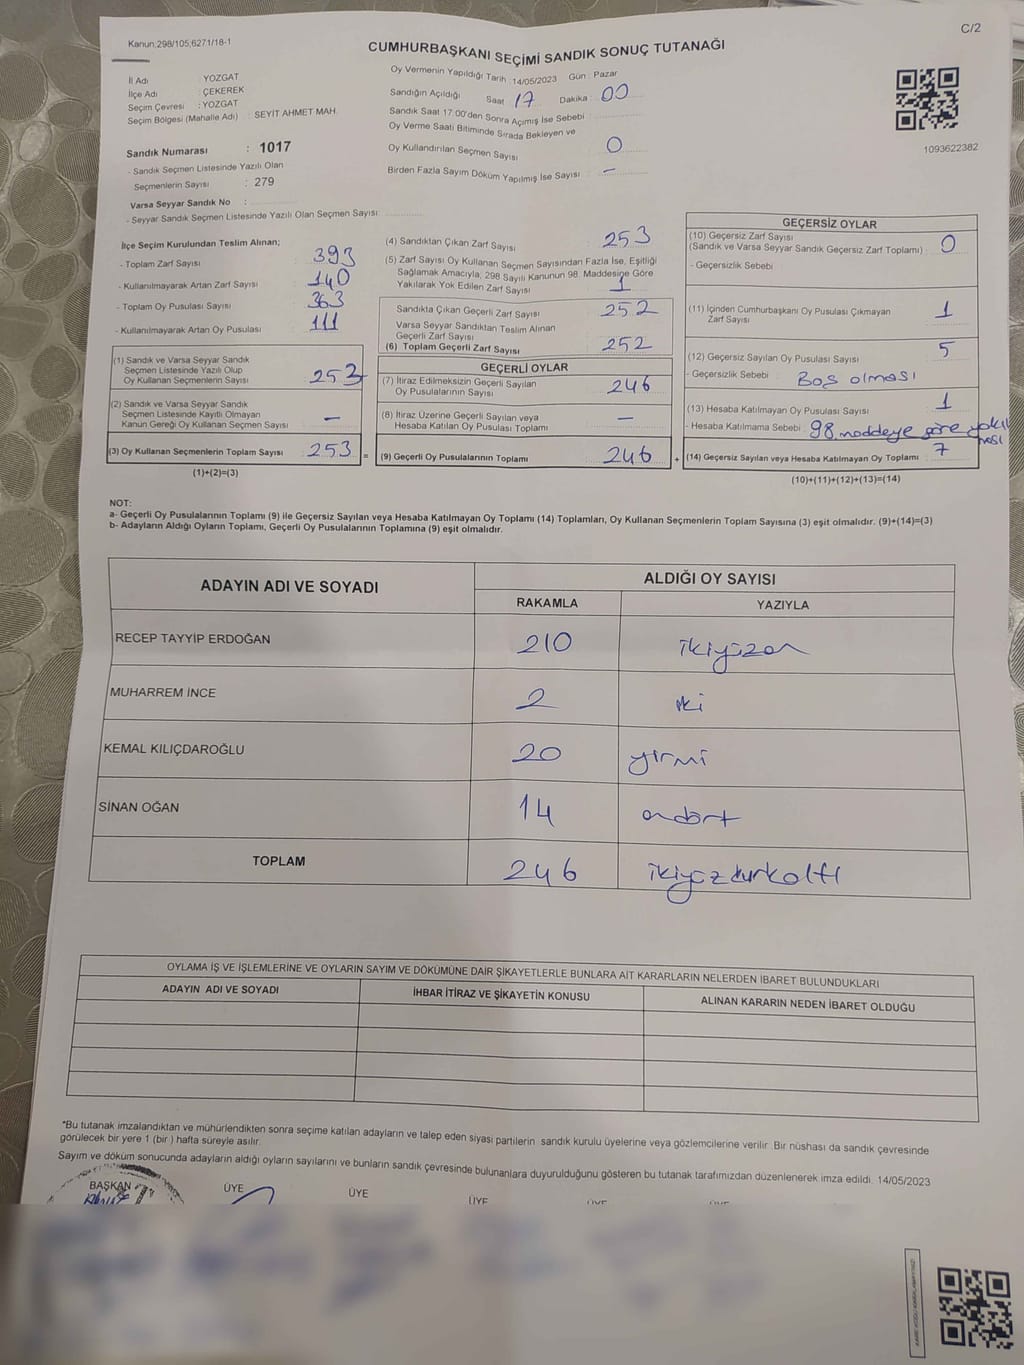 C/2
Kanun;298/105,6271/18-1
CUMHURBAŞKANI SEÇİMİ SANDIK SONUÇ TUTANAĞI
İl Adı : YOZGAT
İlçe Adı : ÇEKEREK
Seçim Çevresi : YOZGAT
Seçim Bölgesi (Mahalle Adı) : SEYİT AHMET MAH.
Sandık Numarası : 1017
- Sandık Seçmen Listesinde Yazılı Olan
Seçmenlerin Sayısı : 279
Varsa Seyyar Sandık No :
- Seyyar Sandık Seçmen Listesinde Yazılı Olan Seçmen Sayısı:
Oy Vermenin Yapıldığı Tarih :14/05/2023 Gün : Pazar
Sandığın Açıldığı Saat 17 Dakika 00
Sandık Saat 17:00'den Sonra Açımış İse Sebebi :
Oy Verme Saati Bitiminde Sırada Bekleyen ve
Oy Kullandırılan Seçmen Sayısı : 0
Birden Fazla Sayım Döküm Yapılmış İse Sayısı : —
1093622382
İlçe Seçim Kurulundan Teslim Alınan;
- Toplam Zarf Sayısı : 393
- Kullanılmayarak Artan Zarf Sayısı : 140
- Toplam Oy Pusulası Sayısı : 363
- Kullanılmayarak Artan Oy Pusulası : 111
(1) Sandık ve Varsa Seyyar Sandık
Seçmen Listesinde Yazılı Olup
Oy Kullanan Seçmenlerin Sayısı : 253
(2) Sandık ve Varsa Seyyar Sandık
Seçmen Listesinde Kayıtlı Olmayan
Kanun Gereği Oy Kullanan Seçmen Sayısı : —
(3) Oy Kullanan Seçmenlerin Toplam Sayısı : 253 =
(1)+(2)=(3)
(4) Sandıktan Çıkan Zarf Sayısı : 253
(5) Zarf Sayısı Oy Kullanan Seçmen Sayısından Fazla İse, Eşitliği
Sağlamak Amacıyla, 298 Sayılı Kanunun 98. Maddesine Göre
Yakılarak Yok Edilen Zarf Sayısı : 1
Sandıkta Çıkan Geçerli Zarf Sayısı : 252
Varsa Seyyar Sandıktan Teslim Alınan
Geçerli Zarf Sayısı :
(6) Toplam Geçerli Zarf Sayısı : 252
GEÇERLİ OYLAR
(7) İtiraz Edilmeksizin Geçerli Sayılan
Oy Pusulalarının Sayısı : 246
(8) İtiraz Üzerine Geçerli Sayılan veya
Hesaba Katılan Oy Pusulası Toplamı : —
(9) Geçerli Oy Pusulalarının Toplamı : 246 +
GEÇERSİZ OYLAR
(10) Geçersiz Zarf Sayısı
(Sandık ve Varsa Seyyar Sandık Geçersiz Zarf Toplamı) : 0
- Geçersizlik Sebebi :
(11) İçinden Cumhurbaşkanı Oy Pusulası Çıkmayan
Zarf Sayısı : 1
(12) Geçersiz Sayılan Oy Pusulası Sayısı : 5
- Geçersizlik Sebebi : Boş olması
(13) Hesaba Katılmayan Oy Pusulası Sayısı : 1
- Hesaba Katılmama Sebebi : 98. maddeye göre yakıl
ması
(14) Geçersiz Sayılan veya Hesaba Katılmayan Oy Toplamı : 7
(10)+(11)+(12)+(13)=(14)
NOT:
a- Geçerli Oy Pusulalarının Toplamı (9) ile Geçersiz Sayılan veya Hesaba Katılmayan Oy Toplamı (14) Toplamları, Oy Kullanan Seçmenlerin Toplam Sayısına (3) eşit olmalıdır. (9)+(14)=(3)
b- Adayların Aldığı Oyların Toplamı, Geçerli Oy Pusulalarının Toplamına (9) eşit olmalıdır.
ADAYIN ADI VE SOYADI
ALDIĞI OY SAYISI
RAKAMLA YAZIYLA
RECEP TAYYİP ERDOĞAN 210 ikiyüzon
MUHARREM İNCE 2 iki
KEMAL KILIÇDAROĞLU 20 yirmi
SİNAN OĞAN 14 ondört
TOPLAM 246 ikiyüzkırkaltı
OYLAMA İŞ VE İŞLEMLERİNE VE OYLARIN SAYIM VE DÖKÜMÜNE DAİR ŞİKAYETLERLE BUNLARA AİT KARARLARIN NELERDEN İBARET BULUNDUKLARI
ADAYIN ADI VE SOYADI İHBAR İTİRAZ VE ŞİKAYETİN KONUSU ALINAN KARARIN NEDEN İBARET OLDUĞU
*Bu tutanak imzalandıktan ve mühürlendikten sonra seçime katılan adayların ve talep eden siyasi partilerin sandık kurulu üyelerine veya gözlemcilerine verilir. Bir nüshası da sandık çevresinde
görülecek bir yere 1 (bir ) hafta süreyle asılır.
Sayım ve döküm sonucunda adayların aldığı oyların sayılarını ve bunların sandık çevresinde bulunanlara duyurulduğunu gösteren bu tutanak tarafımızdan düzenlenerek imza edildi. 14/05/2023
BAŞKAN ÜYE ÜYE ÜYE ÜYE ÜYE